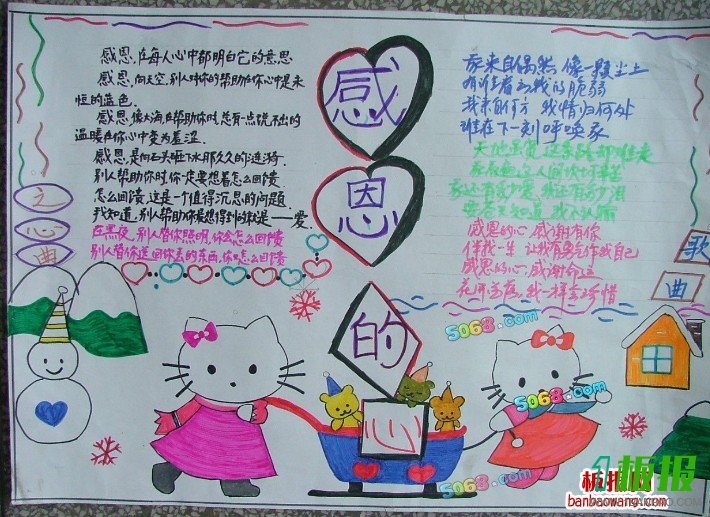 感恩的心
之心曲
感恩，在每人心中都明白它的意思
感恩，向天空，别人对你的帮助在你心中是永
恒的蓝色.
感恩，像大海，在帮助你时，总有一点说不出的
温暖在你心中变为羞涩.
感恩，是向石头砸下水那久久的涟漪.
别人帮助你时你一定要想着怎么回馈
怎么回馈，这是一个值得沉思的问题
我知道，别人帮助你最想得到的就是——爱.
在黑夜，别人替你照明，你会怎么回馈
别人替你送回你丢的东西，你怎么回馈
歌曲
我来自偶然 像一颗尘土
有谁看出我的脆弱
我来自何方 我情归何处
谁在下一刻呼唤我
天地虽宽 这条路却难走
我看遍这人间坎坷辛苦
我还有多少爱 我还有多少泪
要苍天知道 我不认输
感恩的心 感谢有你
伴我一生 让我有勇气作我自己
感恩的心 感谢命运
花开花落 我一样会珍惜
5068.com
5068.com
5068.com
板报
板报网
banbaowang.com